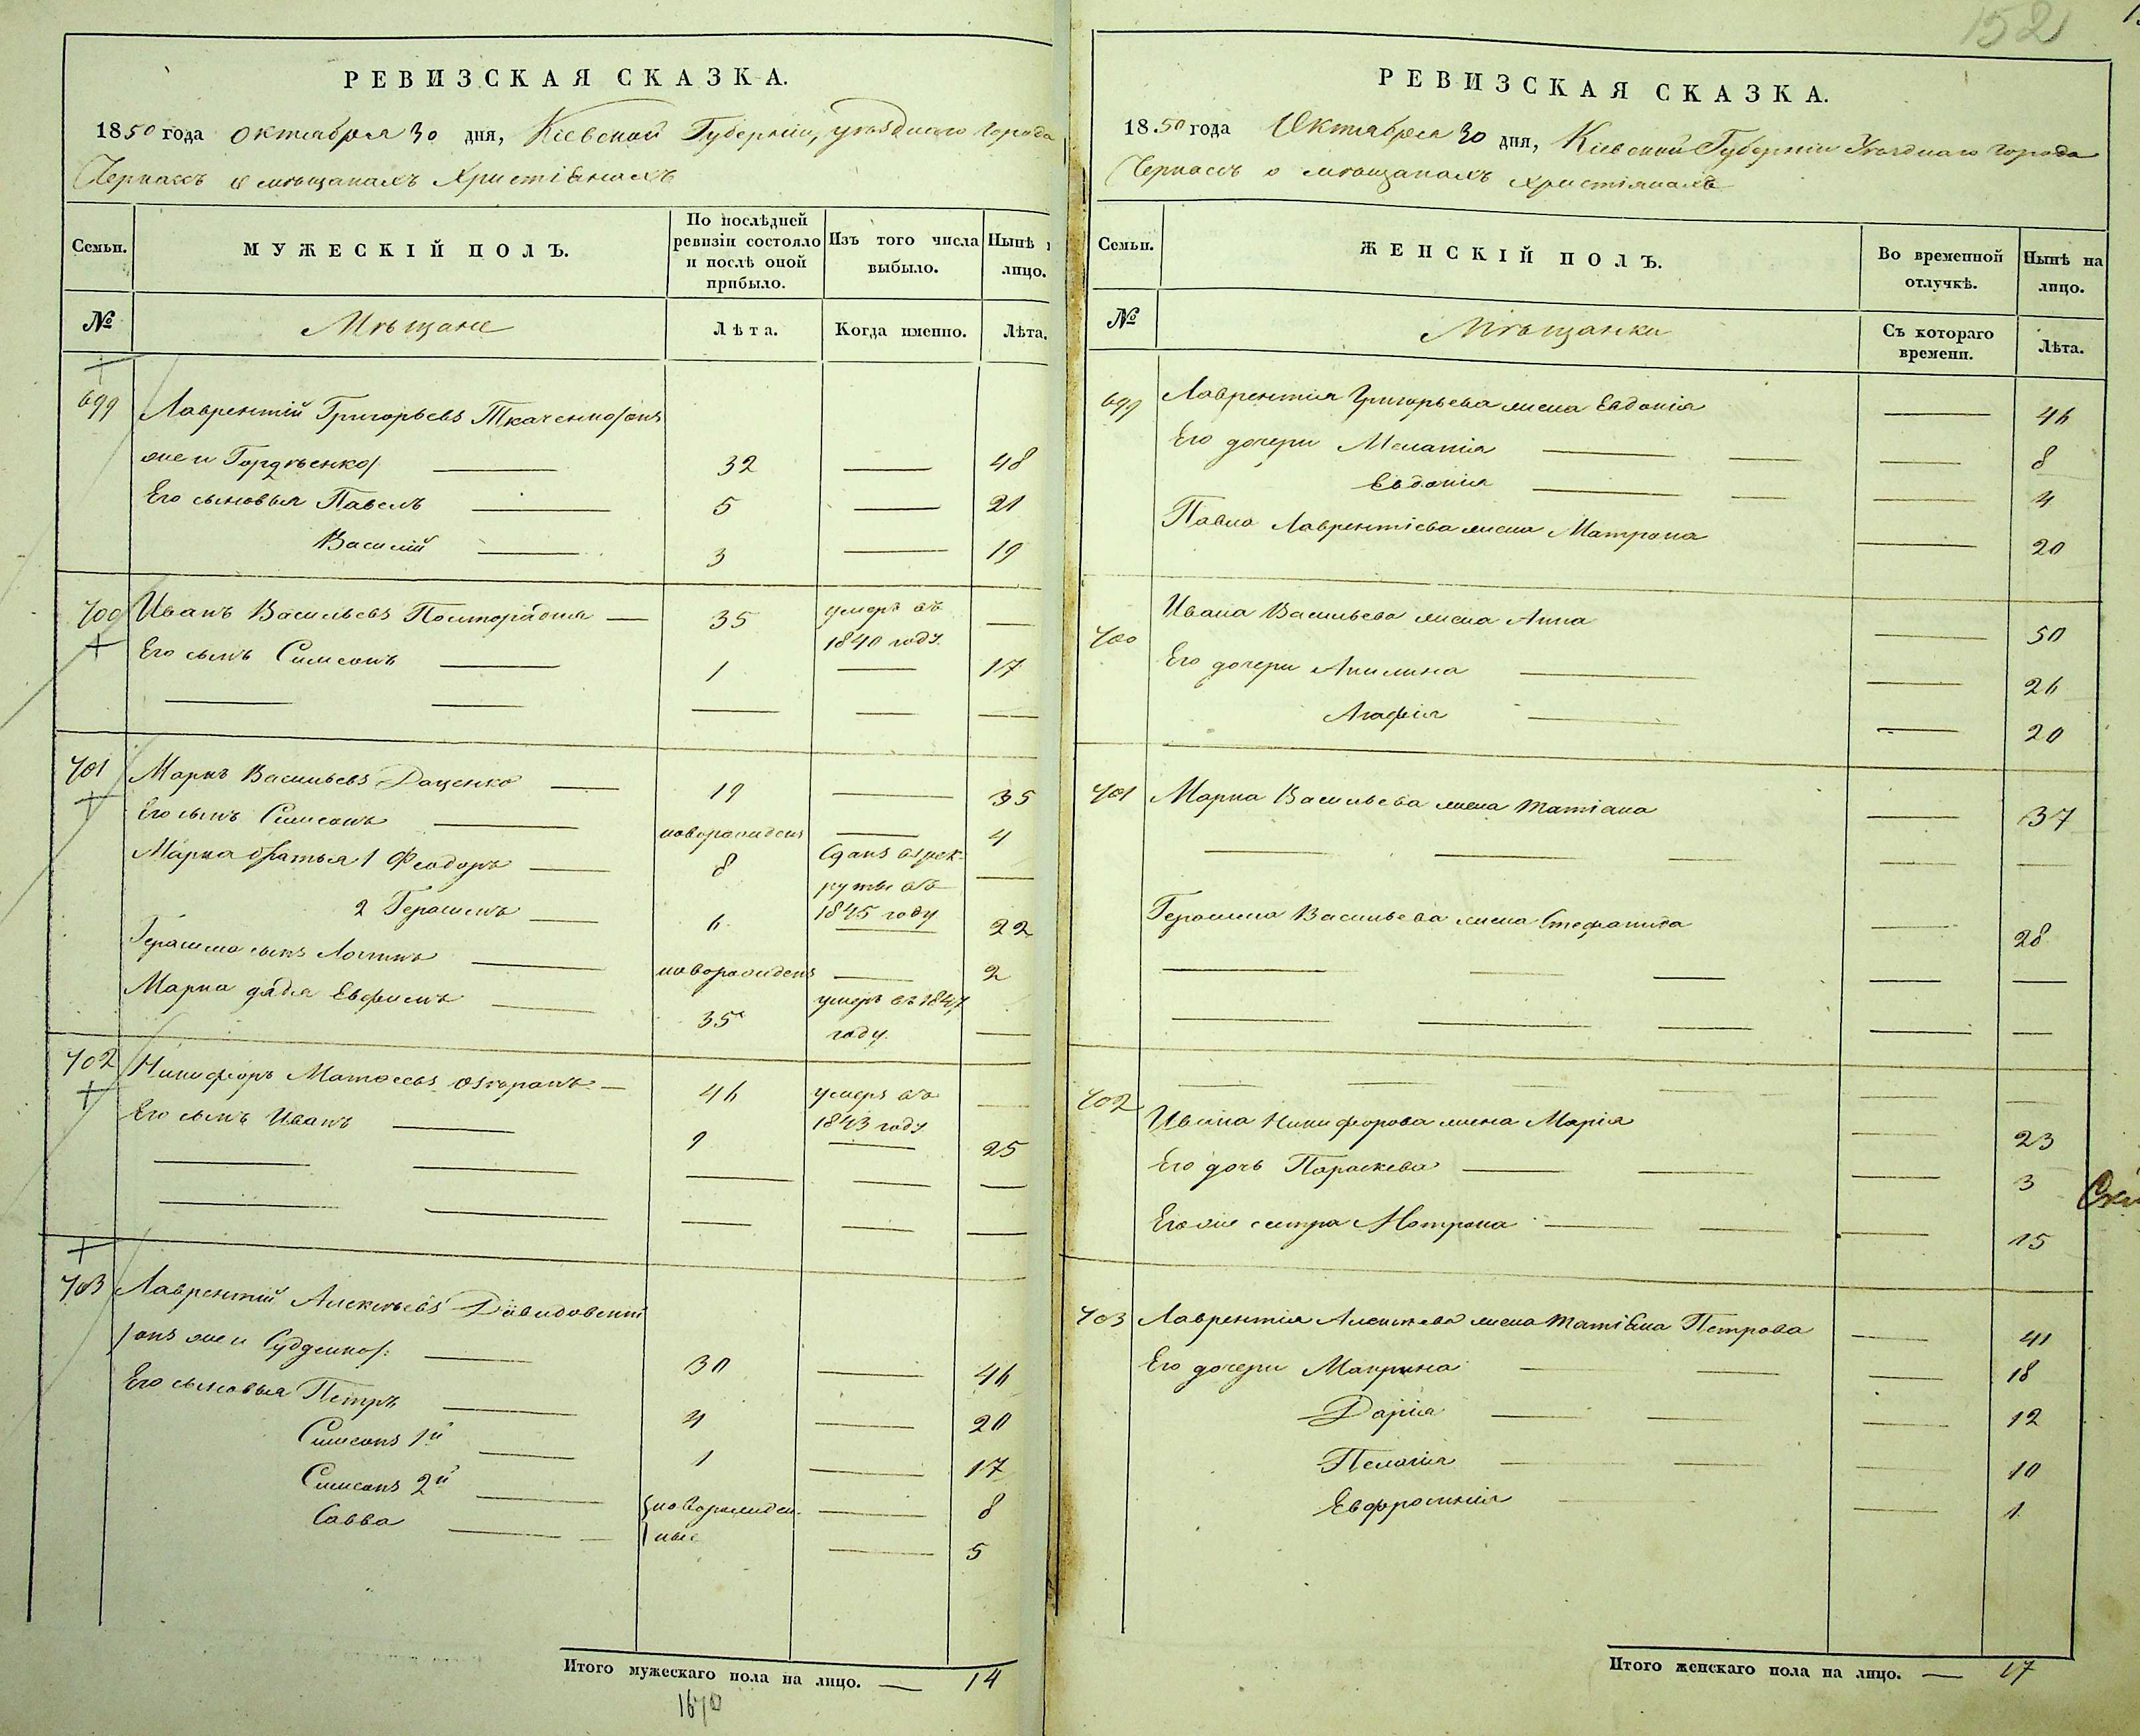 152
РЕВИЗСКАЯ СКАЗКА.
1850 года Октября 30 дня, Кіевской Губерніи, уѣзднаго города
Черкасъ о мѣщанахъ Христіянахъ
Семьи.
МУЖЕСКІЙ ПОЛЪ.
По послѣдней ревизіи состояло и послѣ оной прибыло.
Изъ того числа выбыло.
Нынѣ
лицо.
№
Мѣщане
Лѣта.
Когда именно.
Лѣта.
699 Лаврентій Григорьевъ Ткаченко/онъ
же и Гордѣенко/ — 32 — 48
Его сыновья Павелъ — 5 — 21
Василій — 3 — 19
700 Иванъ Васильевъ Полторацкія — 35 умеръ въ —
1840 году.
Его сынъ Симеонъ — 1 — 17
701 Маркъ Васильевъ Даценко — 19 — 35
Его сынъ Симеонъ — новорожденъ — 4
Марка братья 1 Феодоръ — 8 Сданъ въ рек- —
руты въ
1845 году
2 Герасимъ — 6 — 22
Герасима сынъ Логинъ — новорожденъ — 2
Марка дядя Евфимъ — 35 умеръ въ 1847 —
году.
702 Никифоръ Матвеевъ — 46 умеръ въ —
1843 году
Его сынъ Иванъ — 9 — 25
703 Лаврентій Алексѣевъ Давидовскій
/онъ же и Судденко/: — 30 — 46
Его сыновья Петръ — 4 — 20
Симеонъ 1й — 1 — 17
Симеонъ 2й — новорожден- — 8
Савва — ные — 5
Итого мужескаго пола на лицо. — 14
1670
РЕВИЗСКАЯ СКАЗКА.
1850 года Октября 30 дня, Кіевской Губерніи Уѣзднаго города
Черкасъ о мѣщанахъ христіянахъ
Семьи.
ЖЕНСКІЙ ПОЛЪ.
Во временной отлучкѣ.
Нынѣ на лицо.
№
Мѣщанки
Съ котораго времени.
Лѣта.
699 Лаврентія Григорьева жена Евдокія — 46
Его дочери Меланія — 8
Евдокія — 4
Павла Лаврентіева жена Матрона — 20
700 Ивана Васильева жена Анна — 50
Его дочери Акилина — 26
Агафія — 20
701 Марка Васильева жена Татіана — 37
Герасима Васильева жена Стефанида — 28
702
Ивана Никифорова жена Марія — 23
Его дочь Параскева — 3
Его же сестра Мотрона — 15
703 Лаврентія Алексѣева жена Татіана Петрова — 41
Его дочери Макрина — 18
Дарія — 12
Пелагія — 10
Евфросинія — 1
Итого женскаго пола на лицо. — 17